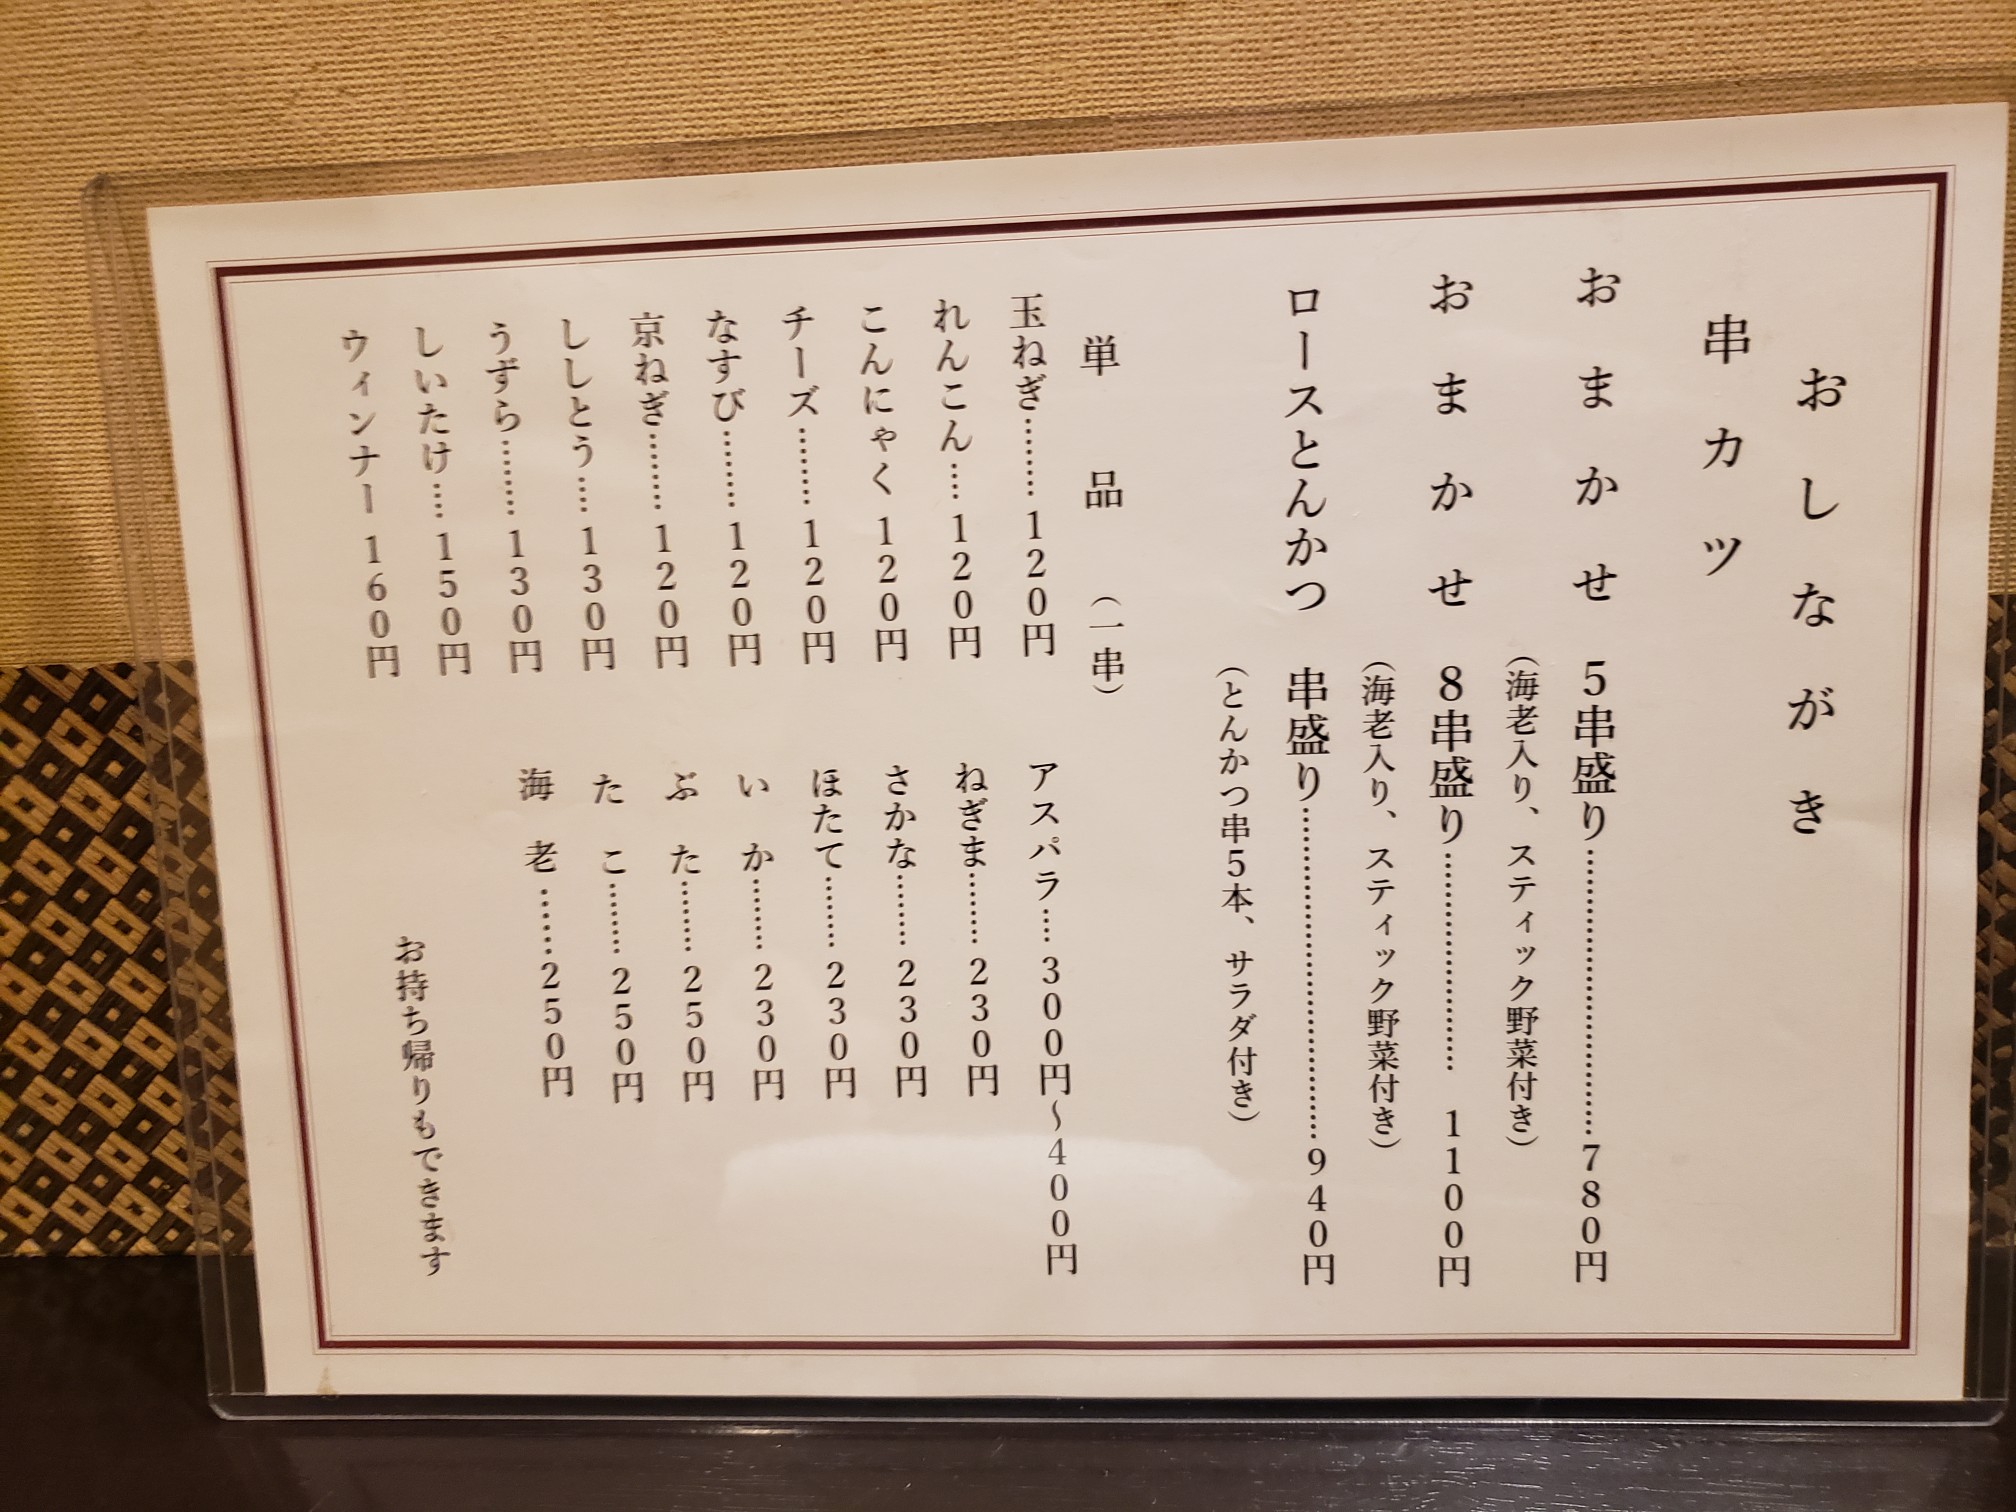 おしながき
串カツ
おまかせ 5串盛り……………………780円
(海老入り、スティック野菜付き)
おまかせ 8串盛り………………1100円
(海老入り、スティック野菜付き)
ロースとんかつ 串盛り………………………940円
(とんかつ串5本、サラダ付き)
単品 (一串)
玉ねぎ………120円
れんこん…120円
こんにゃく120円
チーズ………120円
なすび………120円
京ねぎ………120円
ししとう…130円
うずら………130円
しいたけ…150円
ウィンナー160円
アスパラ…300円～400円
ねぎま………230円
さかな………230円
ほたて………230円
いか………230円
ぶた………250円
たこ………250円
海老………250円
お持ち帰りもできます